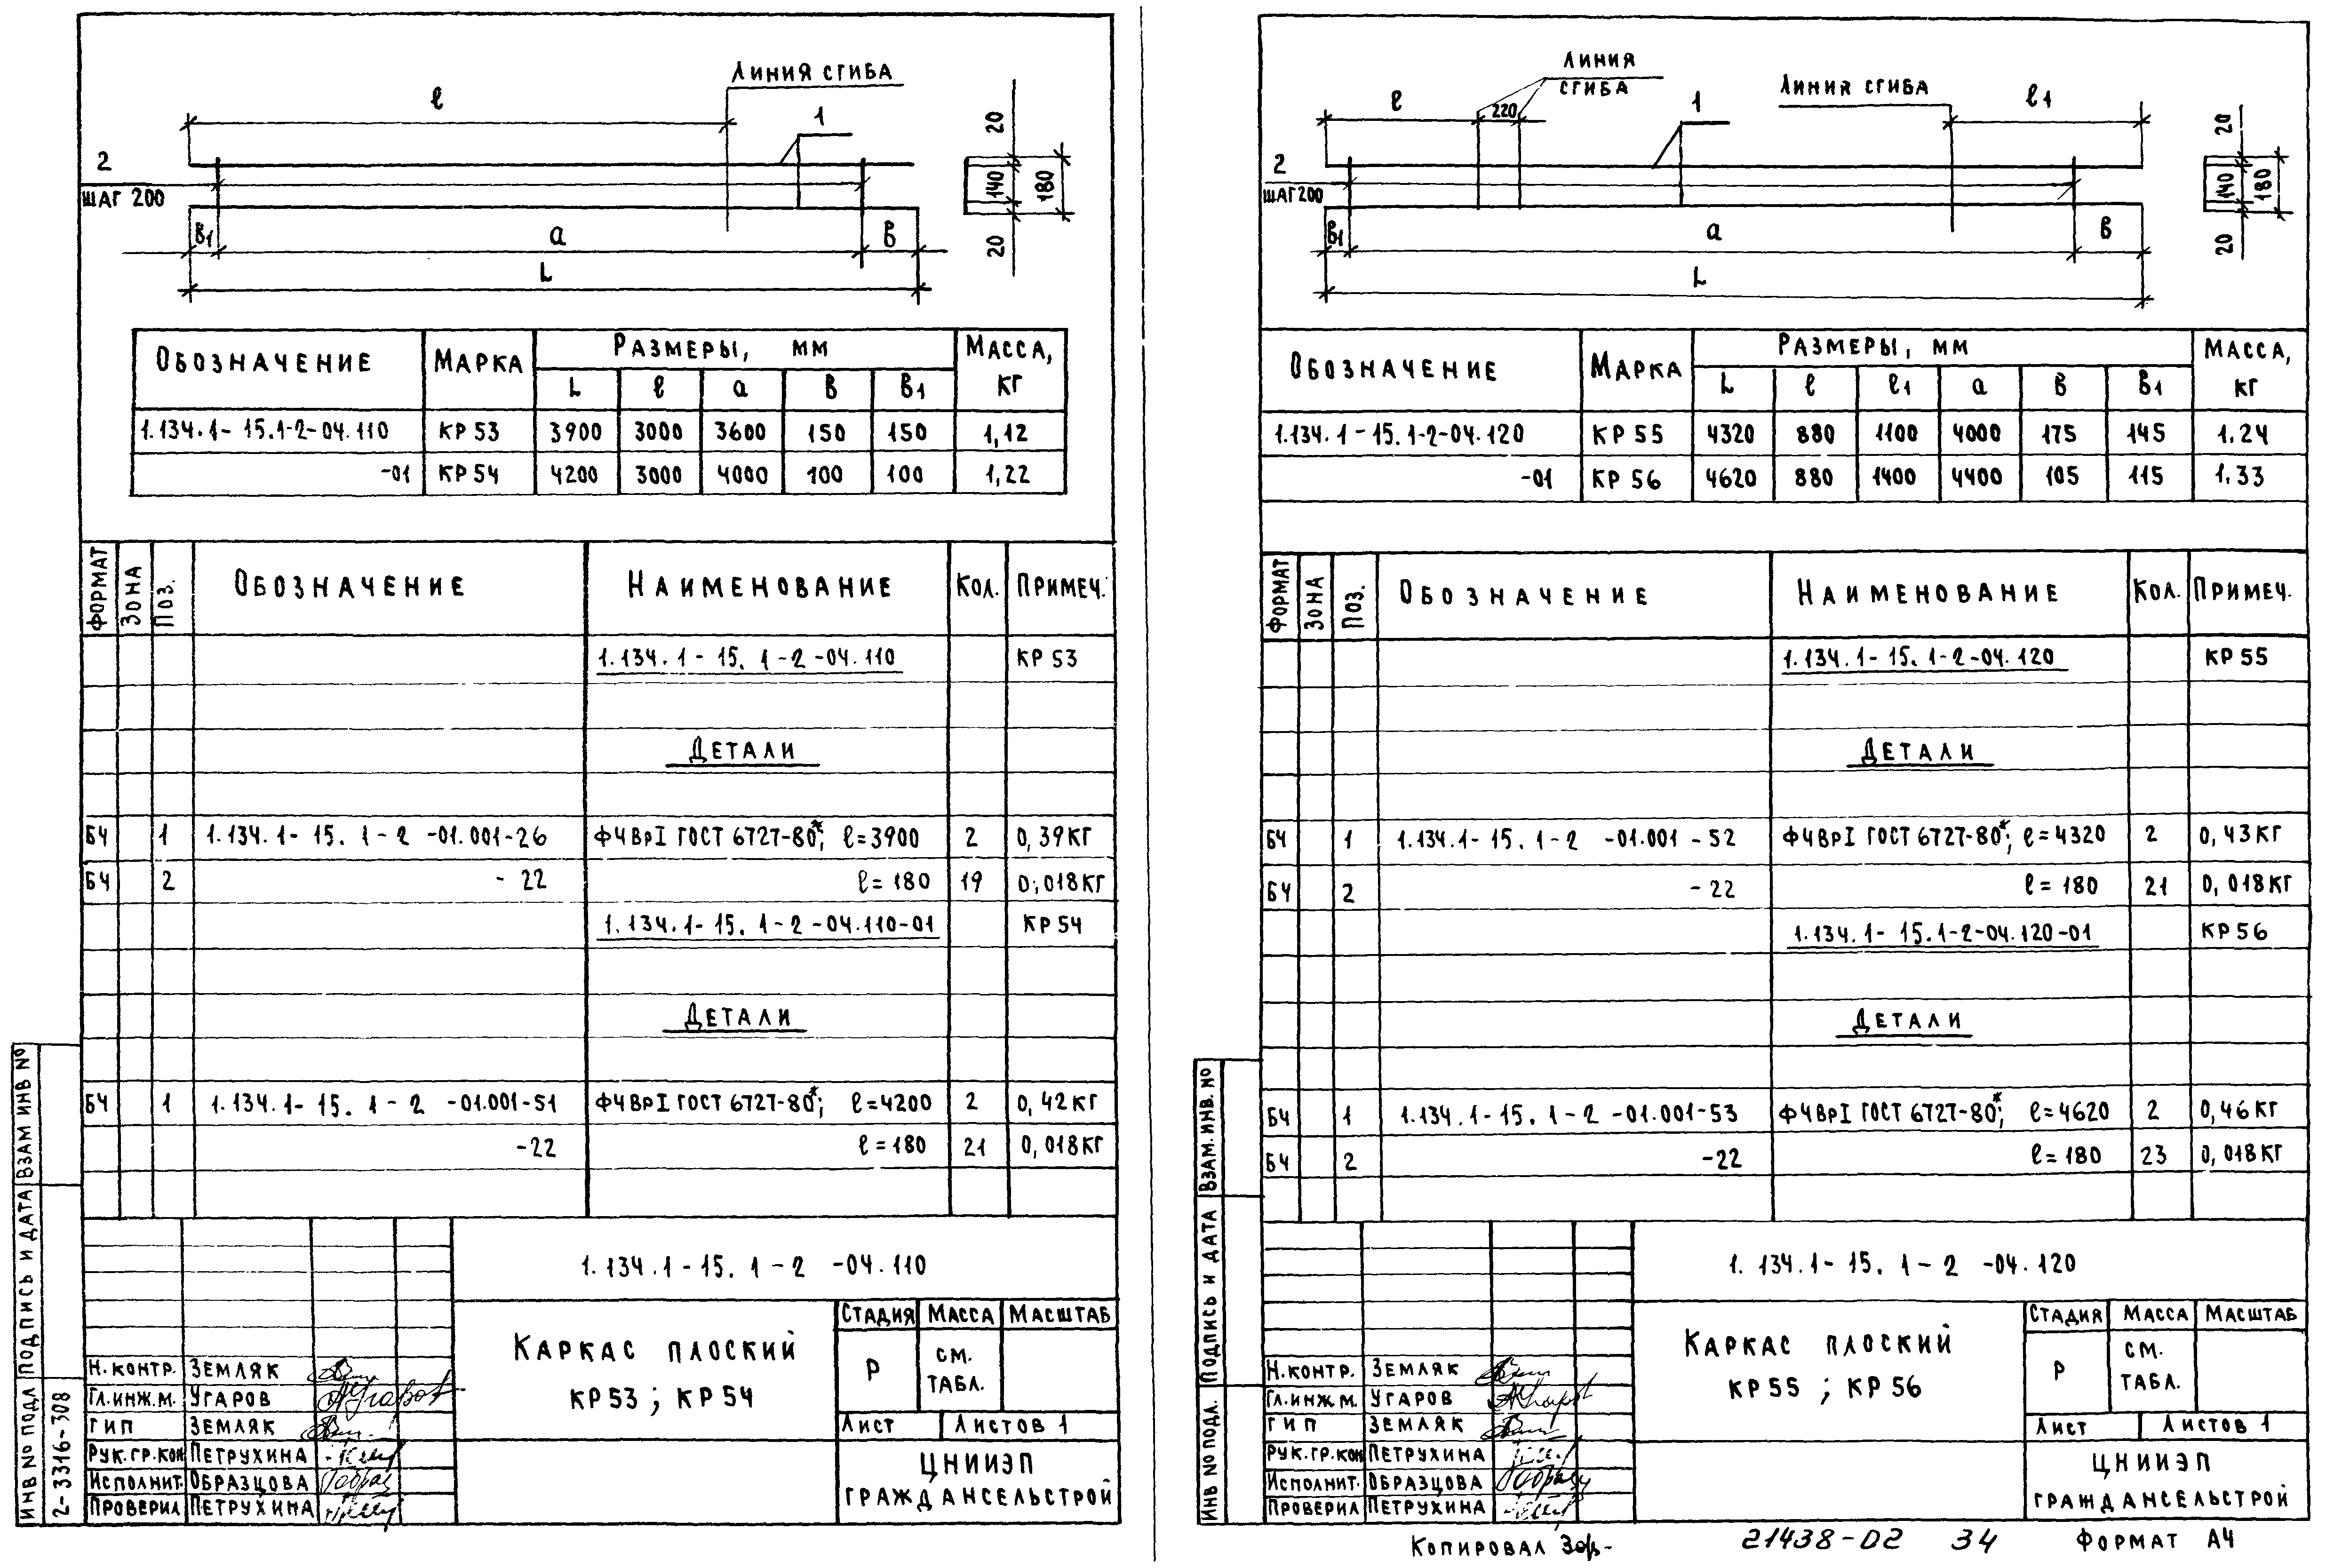 ЛИНИЯ СГИБА
ℓ
1
2
ШАГ 200
В1
а
В
L
20
140
180
20
ОБОЗНАЧЕНИЕ МАРКА РАЗМЕРЫ, ММ МАССА, КГ
L ℓ а В В1
1.134.1-15.1-2-04.110 КР 53 3900 3000 3600 150 150 1,12
-01 КР 54 4200 3000 4000 100 100 1,22
ФОРМАТ ЗОНА ПОЗ. ОБОЗНАЧЕНИЕ НАИМЕНОВАНИЕ КОЛ. ПРИМЕЧ.
1.134.1-15.1-2-04.110 КР 53
ДЕТАЛИ
БЧ 1 1.134.1-15.1-2-01.001-26 Ф4ВрI ГОСТ 6727-80*; ℓ=3900 2 0,39КГ
БЧ 2 -22 ℓ=180 19 0,018КГ
1.134.1-15.1-2-04.110-01 КР 54
ДЕТАЛИ
БЧ 1 1.134.1-15.1-2-01.001-51 Ф4ВрI ГОСТ 6727-80*; ℓ=4200 2 0,42КГ
-22 ℓ=180 21 0,018КГ
1.134.1-15.1-2-04.110
КАРКАС ПЛОСКИЙ
КР 53; КР 54
СТАДИЯ МАССА МАСШТАБ
Р СМ. ТАБЛ.
ЛИСТ ЛИСТОВ 1
ЦНИИЭП
ГРАЖДАНСЕЛЬСТРОЙ
Н.КОНТР. ЗЕМЛЯК
ГЛ.ИНЖ.М. УГАРОВ
ГИП ЗЕМЛЯК
РУК.ГР.КОН ПЕТРУХИНА
ИСПОЛНИТ. ОБРАЗЦОВА
ПРОВЕРИЛ ПЕТРУХИНА
ИНВ № ПОДЛ ПОДПИСЬ И ДАТА ВЗАМ ИНВ №
2-3316-308
ЛИНИЯ
СГИБА
ЛИНИЯ СГИБА
ℓ
220
1
ℓ1
2
ШАГ 200
В1
а
В
L
20
140
180
20
ОБОЗНАЧЕНИЕ МАРКА РАЗМЕРЫ, ММ МАССА, КГ
L ℓ ℓ1 а В В1
1.134.1-15.1-2-04.120 КР 55 4320 880 1100 4000 175 145 1.24
-01 КР 56 4620 880 1400 4400 105 115 1.33
ФОРМАТ ЗОНА ПОЗ. ОБОЗНАЧЕНИЕ НАИМЕНОВАНИЕ КОЛ. ПРИМЕЧ.
1.134.1-15.1-2-04.120 КР 55
ДЕТАЛИ
БЧ 1 1.134.1-15.1-2-01.001-52 Ф4ВрI ГОСТ 6727-80*; ℓ=4320 2 0,43КГ
БЧ 2 -22 ℓ=180 21 0,018КГ
1.134.1-15.1-2-04.120-01 КР 56
ДЕТАЛИ
БЧ 1 1.134.1-15.1-2-01.001-53 Ф4ВрI ГОСТ 6727-80*; ℓ=4620 2 0,46КГ
БЧ 2 -22 ℓ=180 23 0,018КГ
1.134.1-15.1-2-04.120
КАРКАС ПЛОСКИЙ
КР 55; КР 56
СТАДИЯ МАССА МАСШТАБ
Р СМ. ТАБЛ.
ЛИСТ ЛИСТОВ 1
ЦНИИЭП
ГРАЖДАНСЕЛЬСТРОЙ
Н.КОНТР. ЗЕМЛЯК
ГЛ.ИНЖ.М. УГАРОВ
ГИП ЗЕМЛЯК
РУК.ГР.КОН ПЕТРУХИНА
ИСПОЛНИТ. ОБРАЗЦОВА
ПРОВЕРИЛ ПЕТРУХИНА
ИНВ № ПОДЛ. ПОДПИСЬ И ДАТА ВЗАМ.ИНВ.№
КОПИРОВАЛ 21438-02 34 ФОРМАТ А4